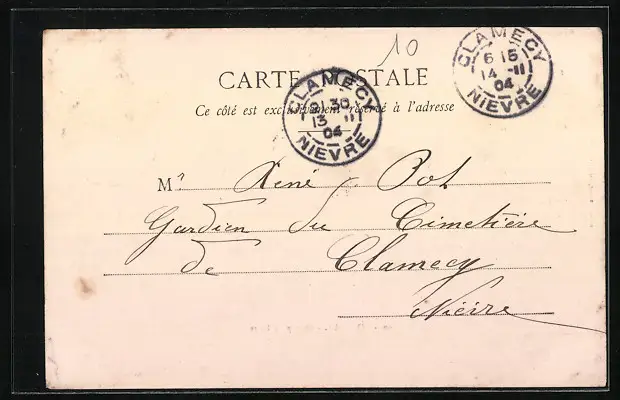 10
CLAMECY
6 15
14 -11
04
NIEVRE
CARTE POSTALE
Ce côté est exclusivement réservé à l'adresse
CLAMECY
30
13 11
04
NIEVRE
Mr René Pot
Gardien du Cimetière
de Clamecy
Nièvre